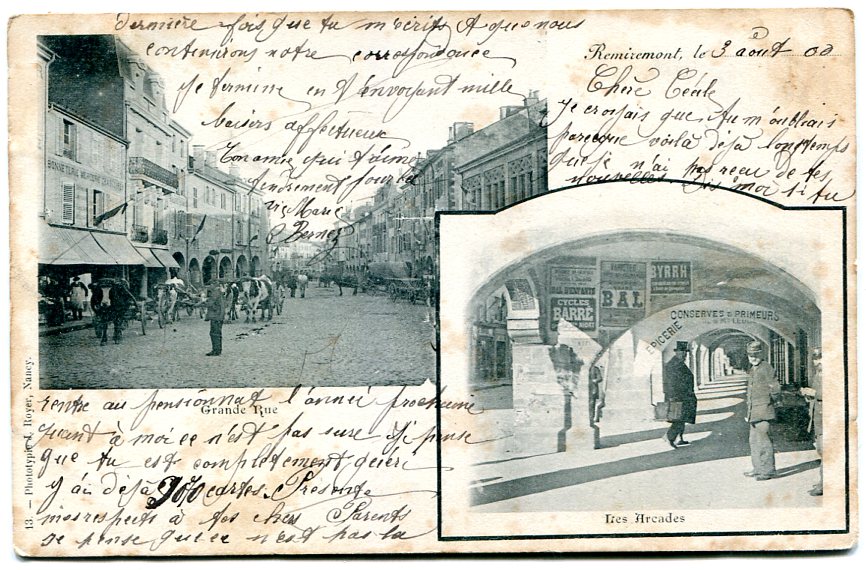 Remiremont, le 3 août 00
Chère Cécile
Je croyais que tu m'oubliais
parceque voilà déjà longtemps
que je n'ai pas reçu de tes
nouvelles Dis moi si tu
rentre au pensionnat l'année prochaine
quant à moi ce n'est pas sure Je pense
que tu est complètement guérie
J'ai déjà 900 cartes. Présente
mes respects à tes chers Parents
Je pense que ce n'est pas la
dernière fois que tu m'écris Et que nous
continuerons notre correspondance
Je termine en t'envoyant mille
baisers affectueux
Ton amie qui t'aime
tendrement pour la
vie Marie
BONNETERIE MERCERIE
Grande Rue
BAL D'ENFANTS
CYCLES
BARRÉ
BAL
BYRRH
EPICERIE CONSERVES & PRIMEURS
Les Arcades
13. — Phototypie J. Royer, Nancy.